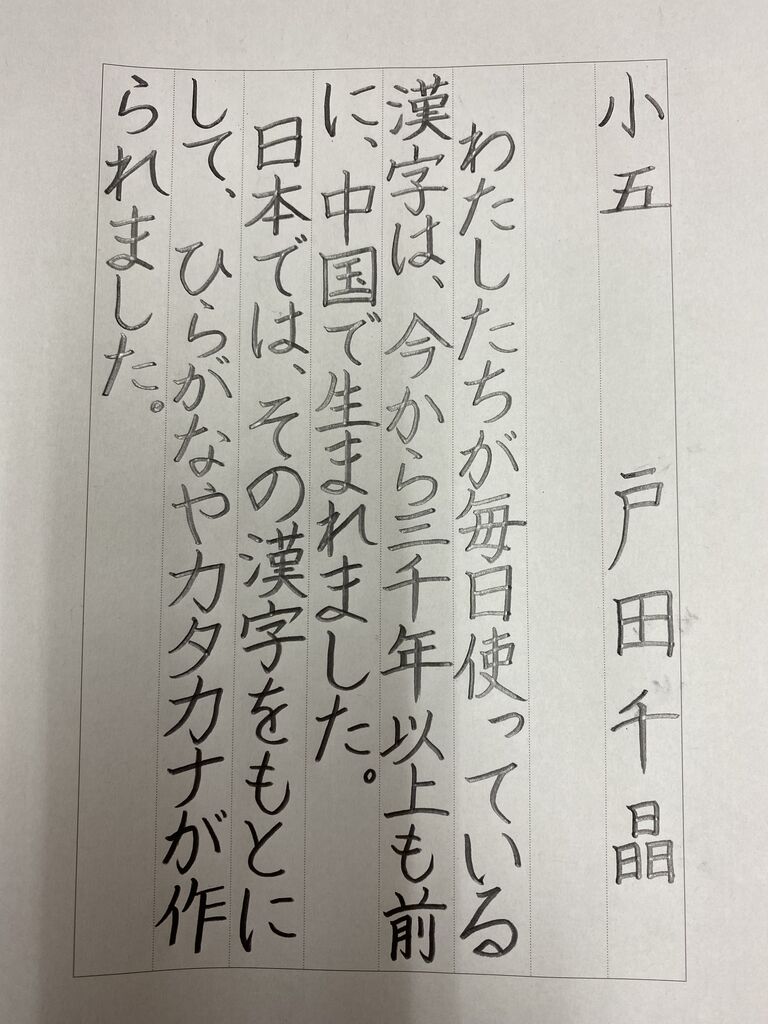 小五 戸田千晶
わたしたちが毎日使っている
漢字は、今から三千年以上も前
に、中国で生まれました。
日本では、その漢字をもとに
して、ひらがなやカタカナが作
られました。